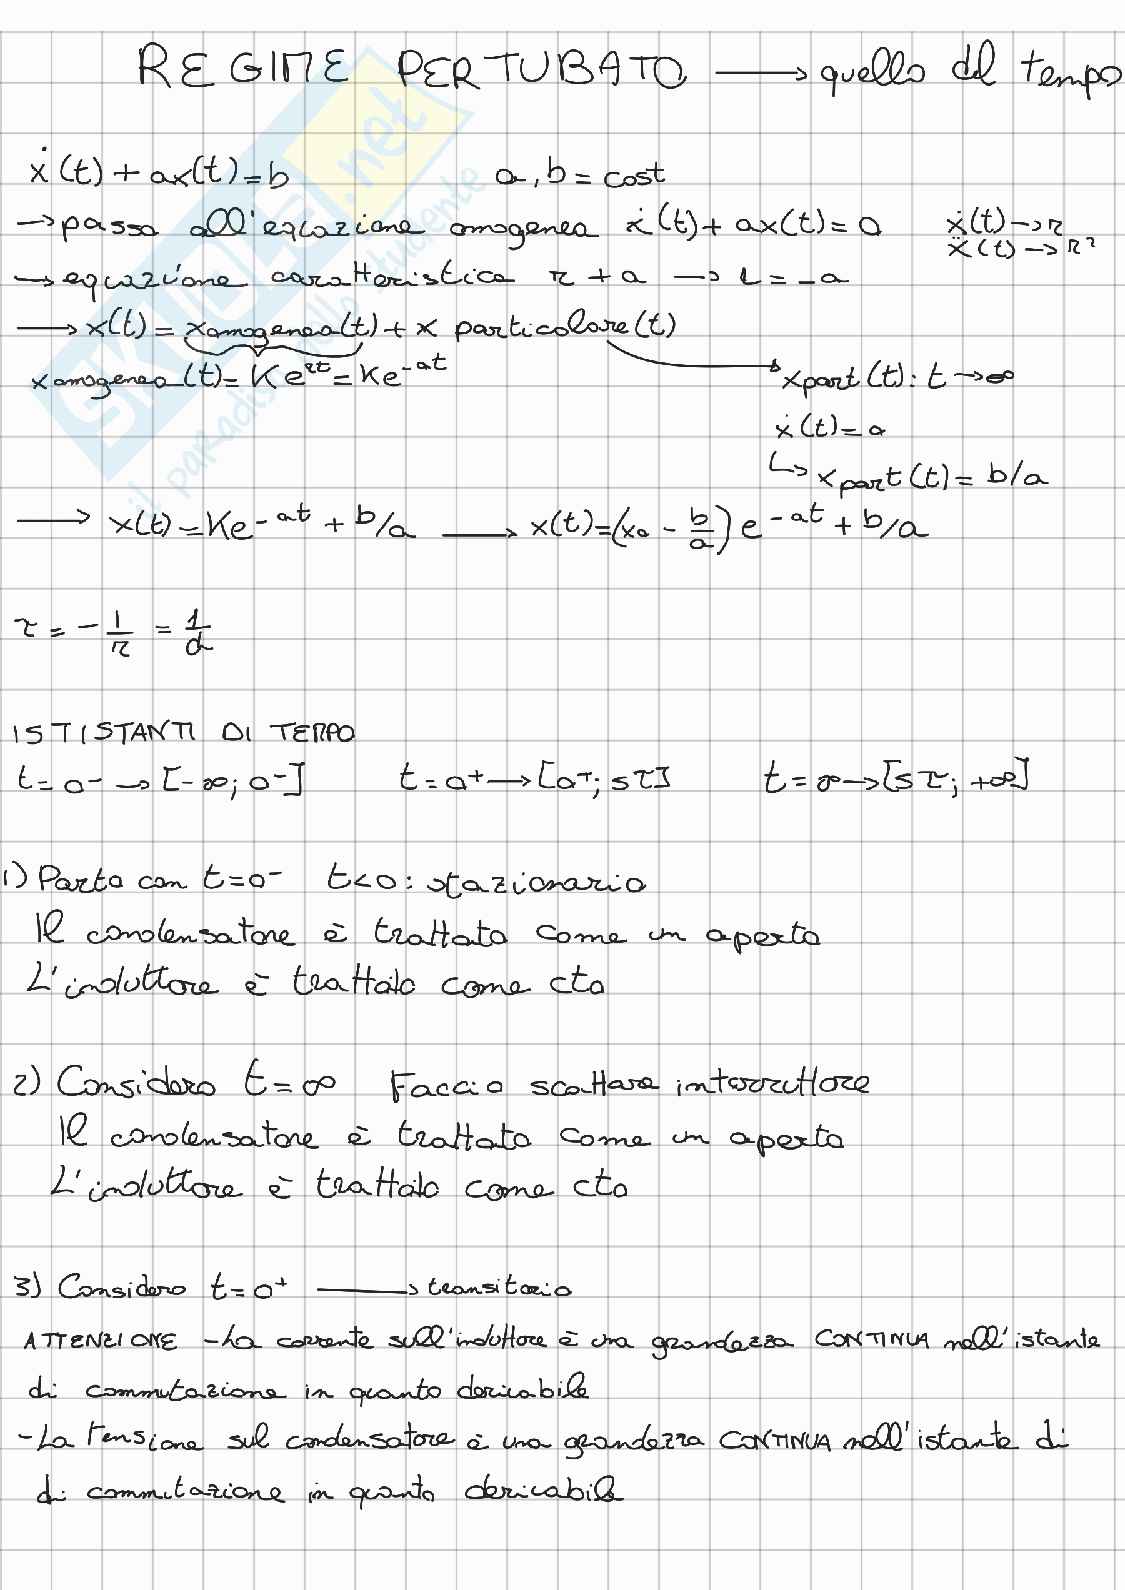 REGIME PERTUBATO → quello del tempo
ẋ(t) + ax(t) = b a, b = cost
→ passo all'equazione omogenea ẋ(t) + ax(t) = 0 ẋ(t) → r
ẍ(t) → r²
→ equazione caratteristica r + a → r = -a
→ x(t) = x omogenea(t) + x particolare(t)
x omogenea(t) = Ke^rt = Ke^-at x part(t): t → ∞
ẋ(t) = 0
↳ x part(t) = b/a
→ x(t) = Ke^-at + b/a → x(t) = (x0 - b/a) e^-at + b/a
τ = -1/r = 1/a
ISTISTANTI DI TEMPO
t = 0⁻ → [-∞; 0⁻] t = 0⁺ → [0⁺; 5τ] t = ∞ → [5τ; +∞]
1) Parto con t = 0⁻ t < 0: stazionario
Il condensatore è trattato come un aperto
L'induttore è trattato come cto
2) Considero t = ∞ Faccio scattare interruttore
Il condensatore è trattato come un aperto
L'induttore è trattato come cto
3) Considero t = 0⁺ → transitorio
ATTENZIONE - La corrente sull'induttore è una grandezza CONTINUA nell'istante
di commutazione in quanto derivabile
- La tensione sul condensatore è una grandezza CONTINUA nell'istante di
di commutazione in quanto derivabile
SKUOLA.net
il paradiso dello studente